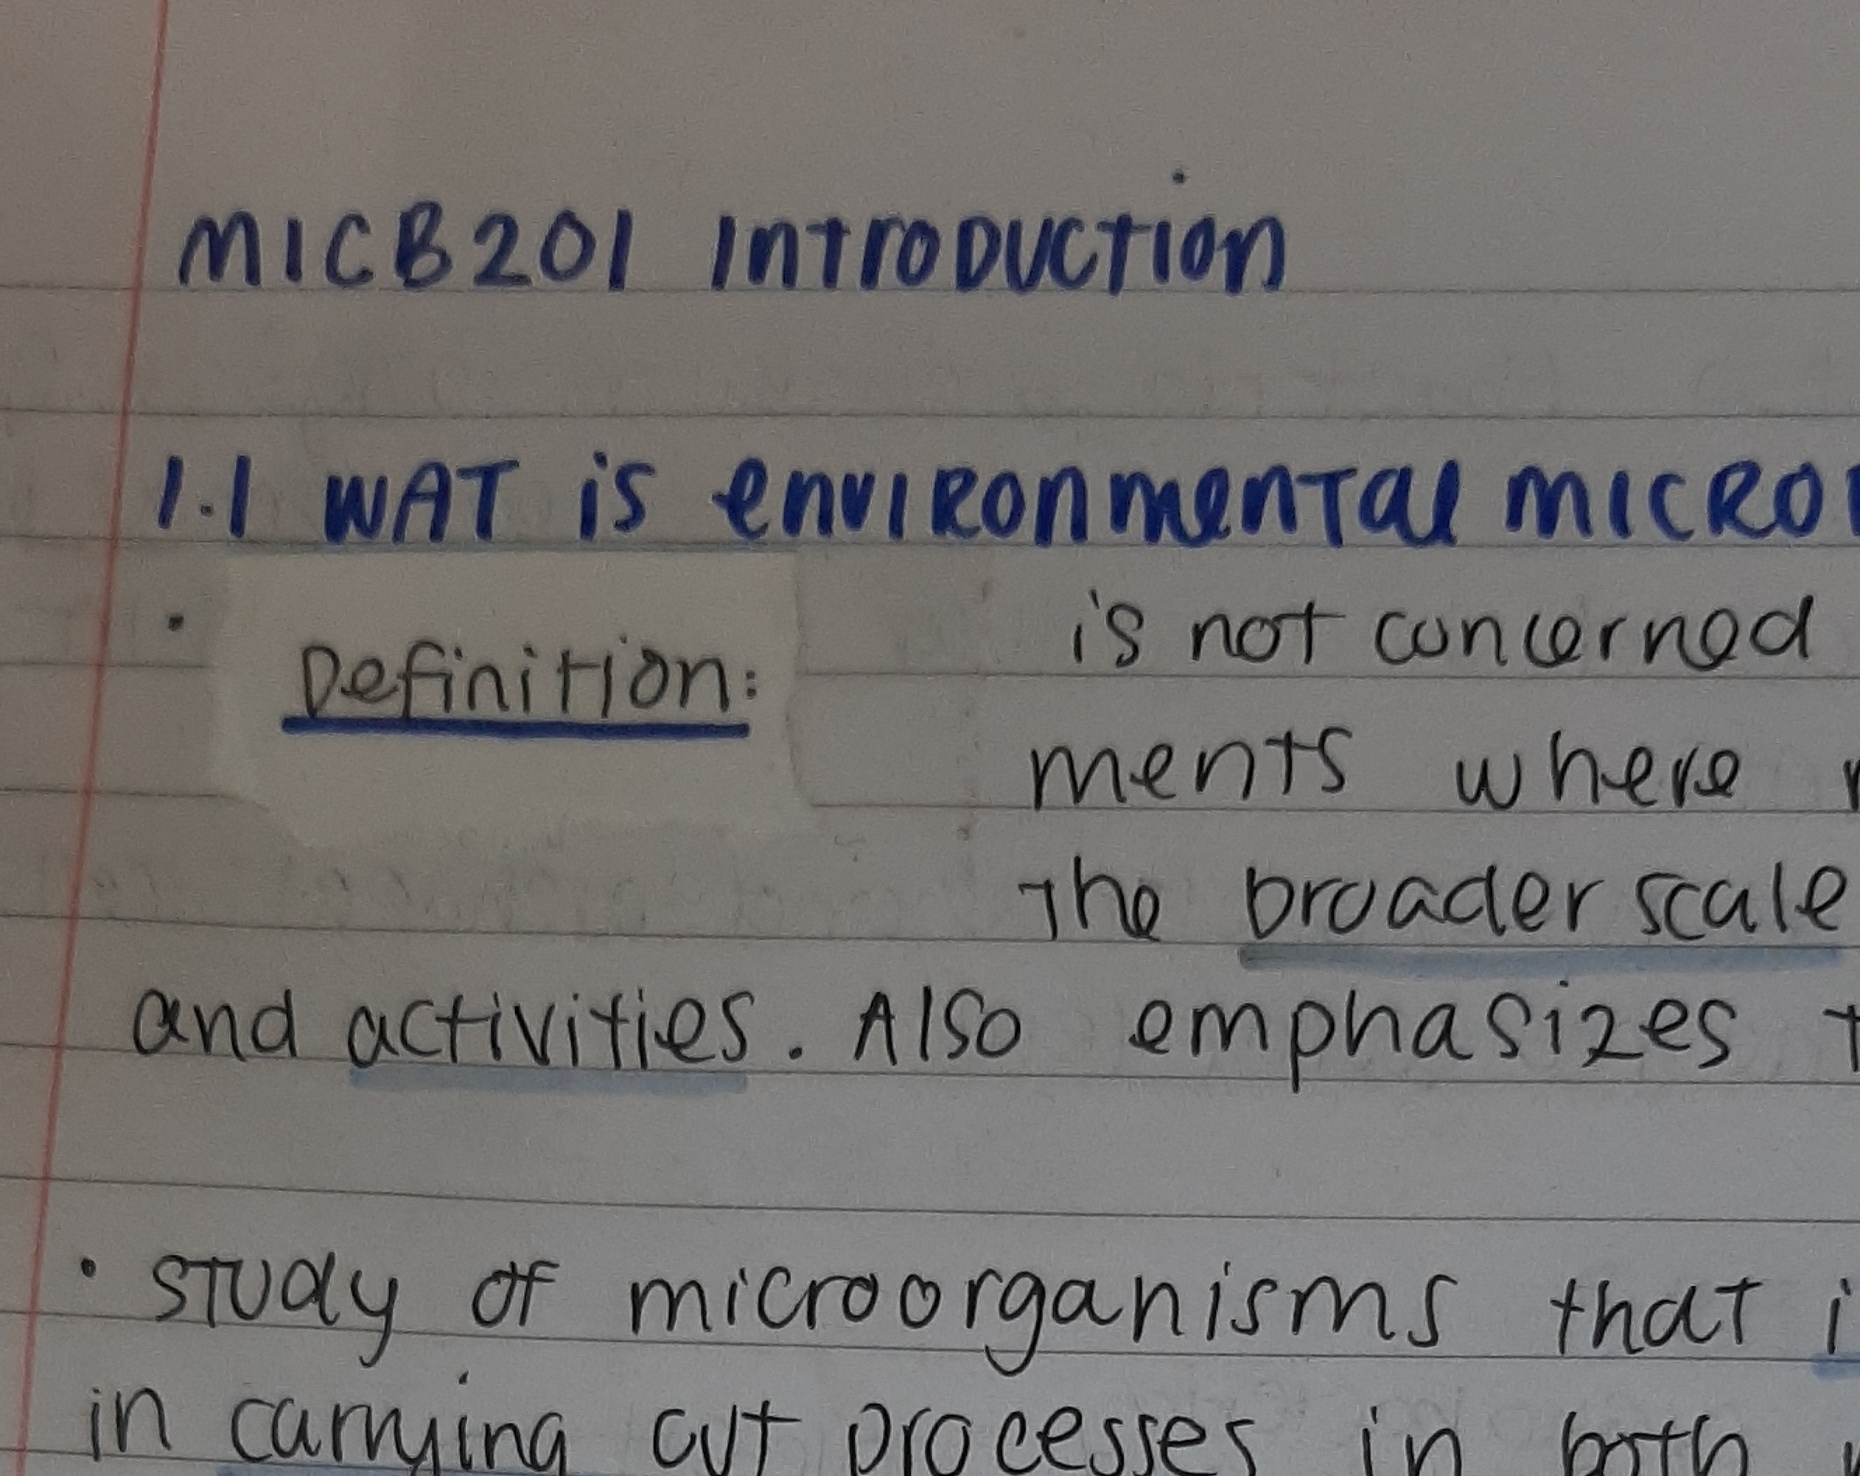 MICB201 Introduction
1.1 WAT is environmental micro
• Definition: is not concerned
ments where
The broader scale
and activities. Also emphasizes
• study of microorganisms that
in carrying out processes in both